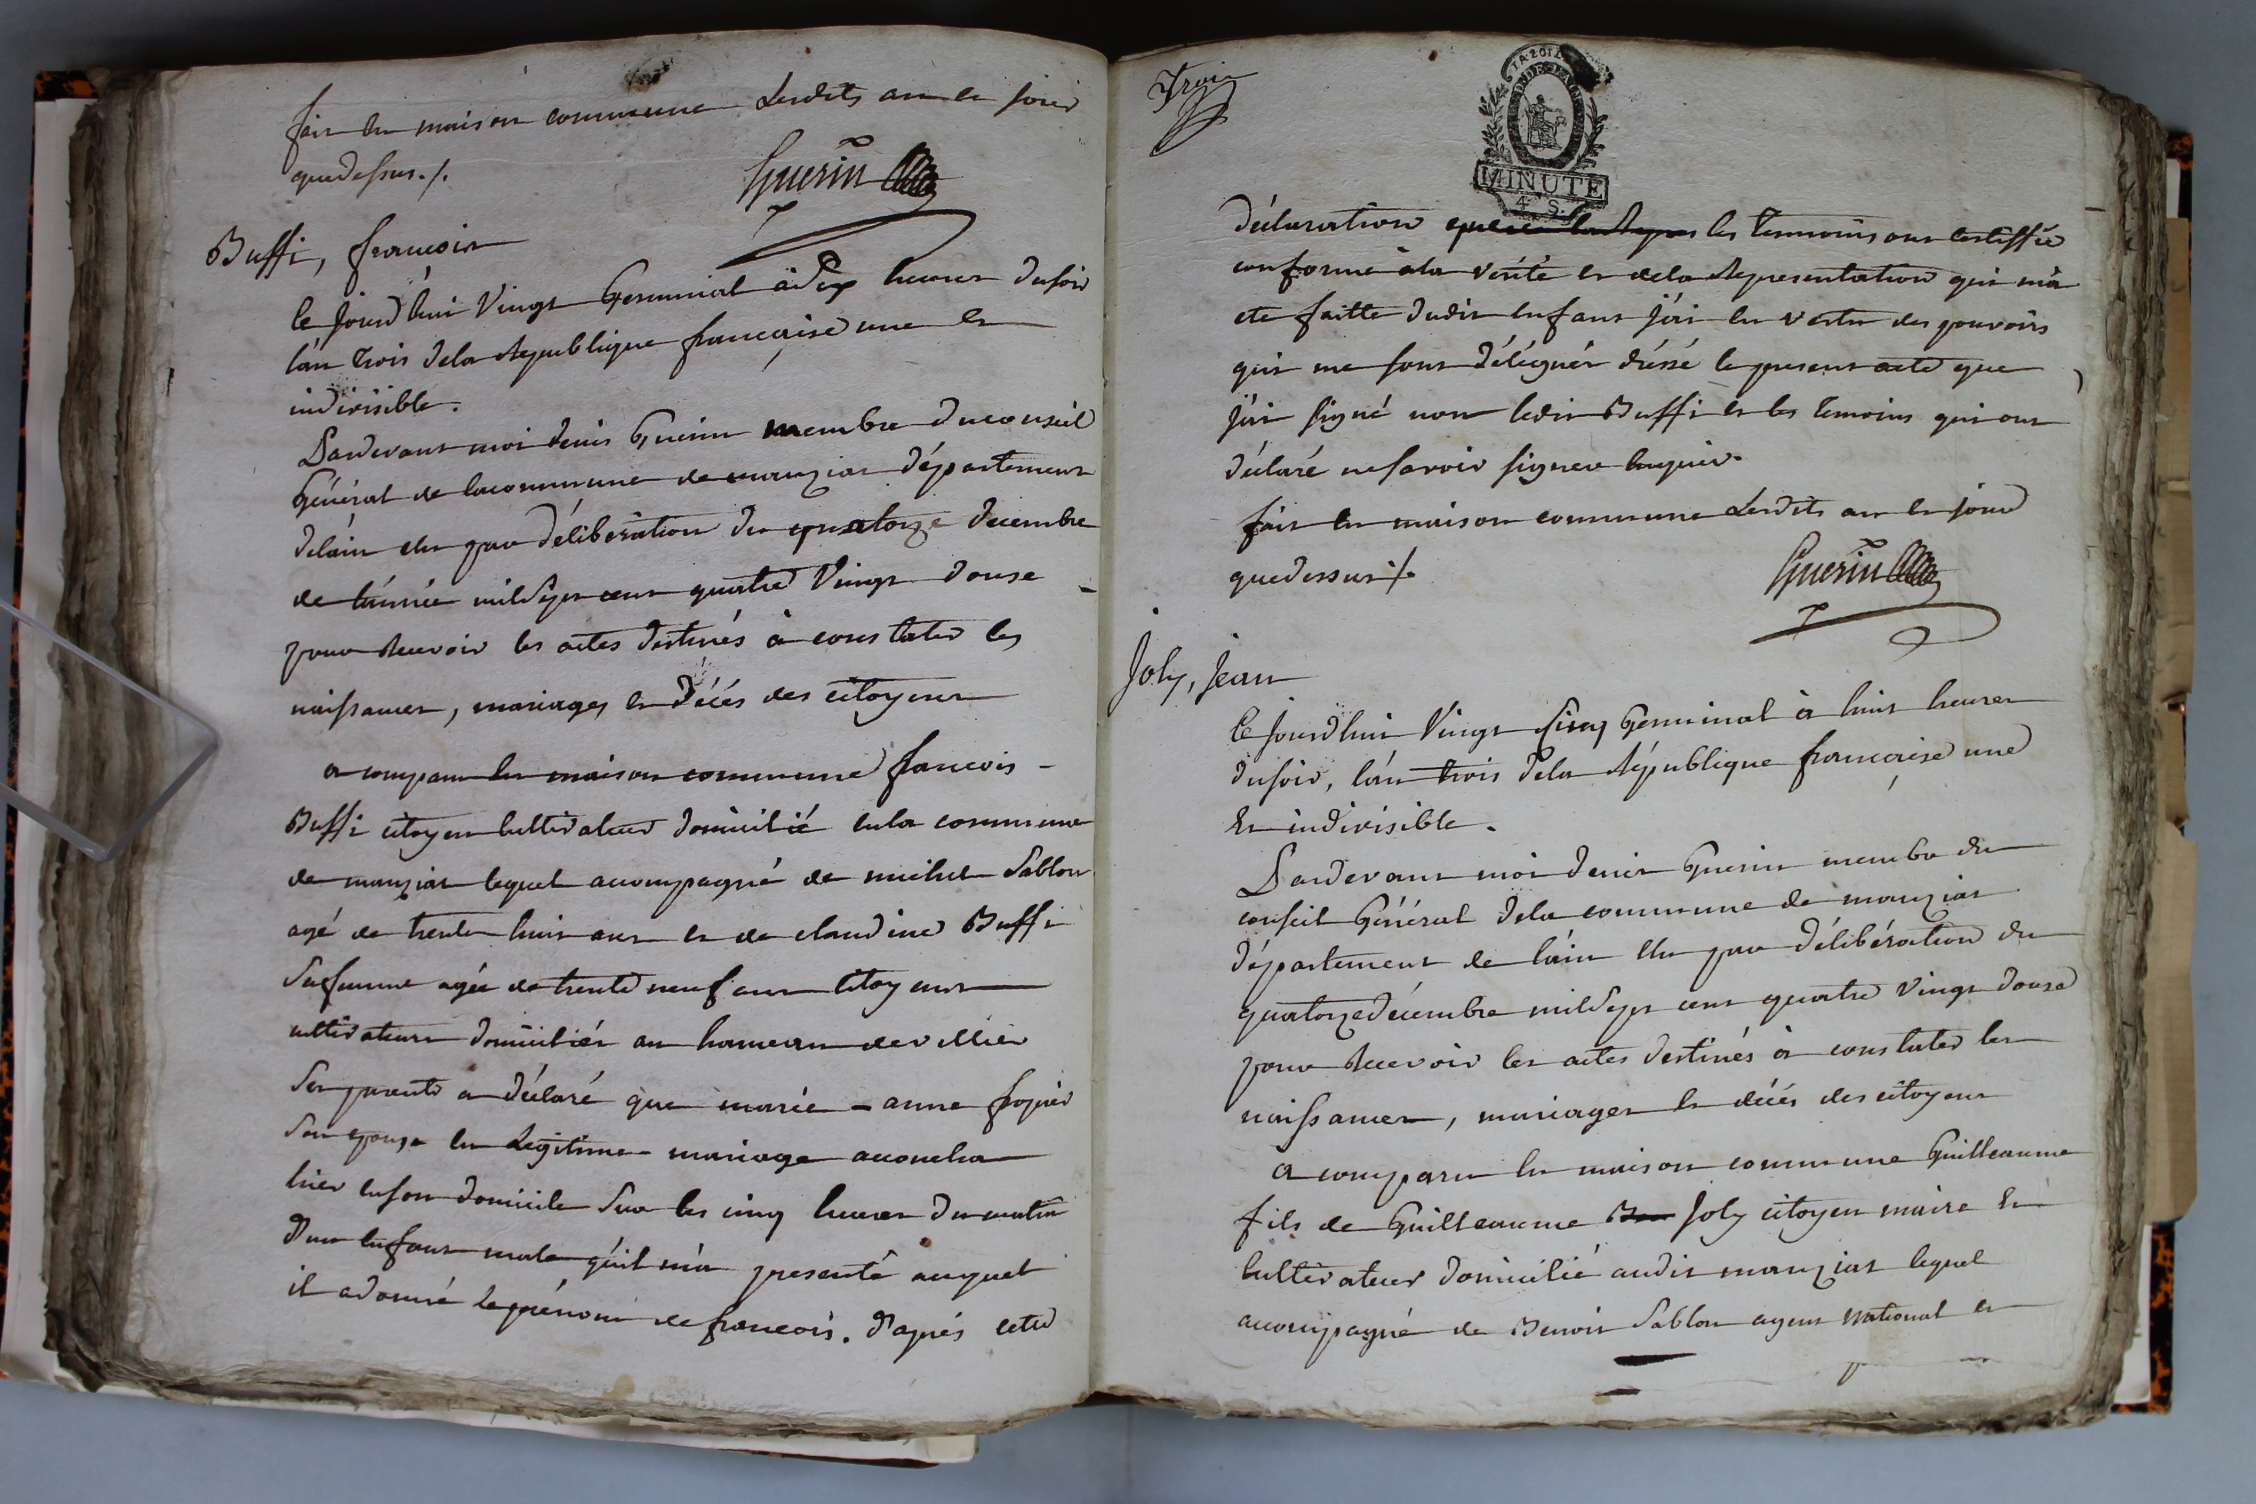 fait en maison commune Lesdits an et jour
que dessus ./.
Guerin
Buffi, francois
Ce jourd'hui Vingt Germinal à dix heures du soir
l'an trois de la Republique française une et
indivisible.
Pardevant moi denis Guerin membre du conseil
Général de la commune de manziat département
de l'ain elu par délibération du quatorze decembre
de l'année mil sept cent quatre Vingt douze
pour recevoir les actes destinés à constater les
naissances, mariages et décés des citoyens
a comparu en maison commune francois
Buffi citoyen cultivateur domicilié en la commune
de manziat lequel accompagné de michel Sablon
agé de trente huit ans et de claudine Buffi
sa femme agée de trente neuf ans citoyens
cultivateurs domiciliés au hameau de
ses parents a déclaré que marie - anne
son epouse en Legitime mariage accoucha
hier en son domicile sur les cinq heures du matin
d'un enfant male qu'il m'a presenté auquel
il a donné le prénom de francois. d'aprés cette
Trois
MINUTE
4 S.
déclaration les temoins ont certiffié
conforme à la verité et de la Representation qui m'a
eté faitte dudit enfant j'ai en vertu des pouvoirs
qui me sont délégués dréssé le present acte que
j'ai signé non ledit Buffi et les temoins qui ont
déclaré ne savoir signer enquis.
fait en maison commune Lesdits an et jour
que dessus ./.
Guerin
Joly, Jean
Ce jourd'hui Vingt Cinq Germinal à huit heures
du soir, l'an trois de la République française une
et indivisible.
Pardevant moi denis Guerin membre du
conseil Général de la commune de manziat
département de l'ain elu par délibération du
quatorze décembre mil sept cent quatre Vingt douze
pour recevoir les actes destinés à constater les
naissances, mariages et décés des citoyens
a comparu en maison commune Guilleaume
fils de Guilleaume Joly citoyen maire et
cultivateur domicilié audit manziat lequel
accompagné de Benoit Sablon agent national et